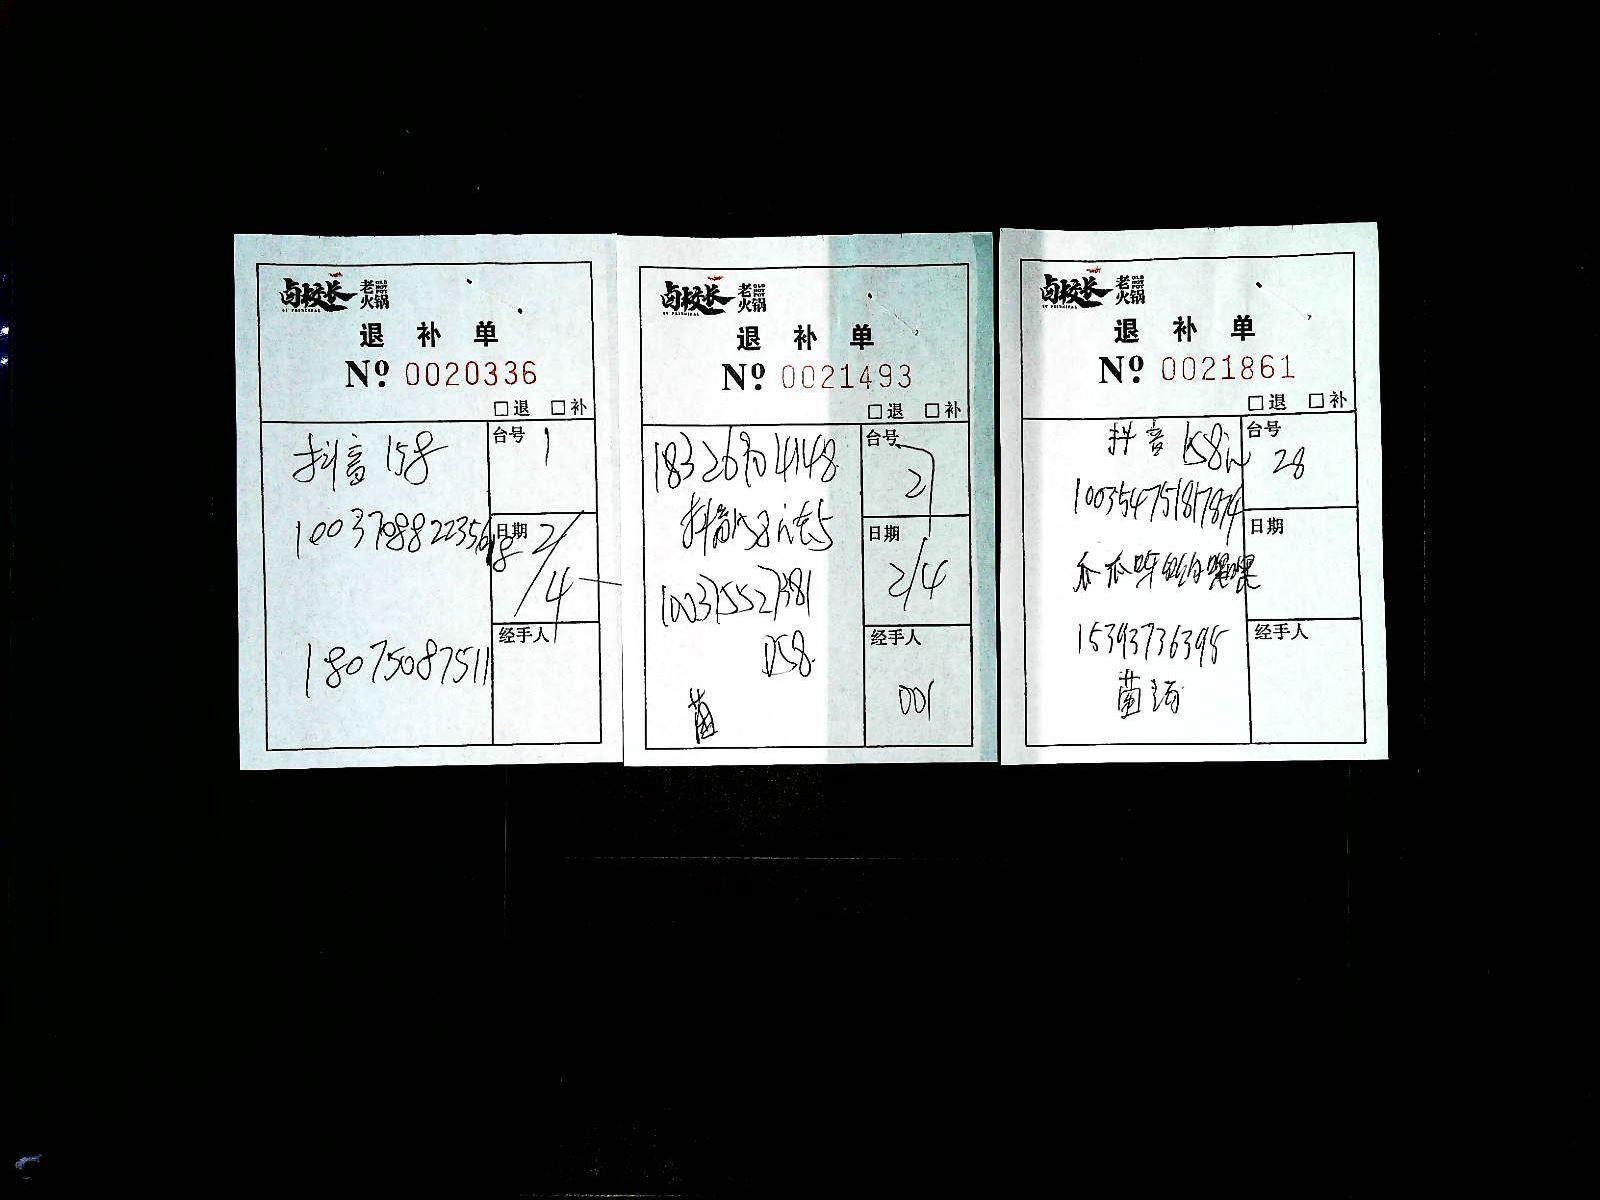 卤校长 老火锅 OLD HOT POT
LU PRINCIPAL
退 补 单
Nº 0020336
□退 □补
抖音 158
台号 1
日期 2/4
经手人
18075087511
卤校长 老火锅 OLD HOT POT
LU PRINCIPAL
退 补 单
Nº 0021493
□退 □补
18326704148
台号 21
抖音158元
日期 2/4
158
经手人 001
菌
卤校长 老火锅 OLD HOT POT
LU PRINCIPAL
退 补 单
Nº 0021861
□退 □补
抖音 158元
台号 28
100354751817874
日期
15393736395
经手人
菌汤